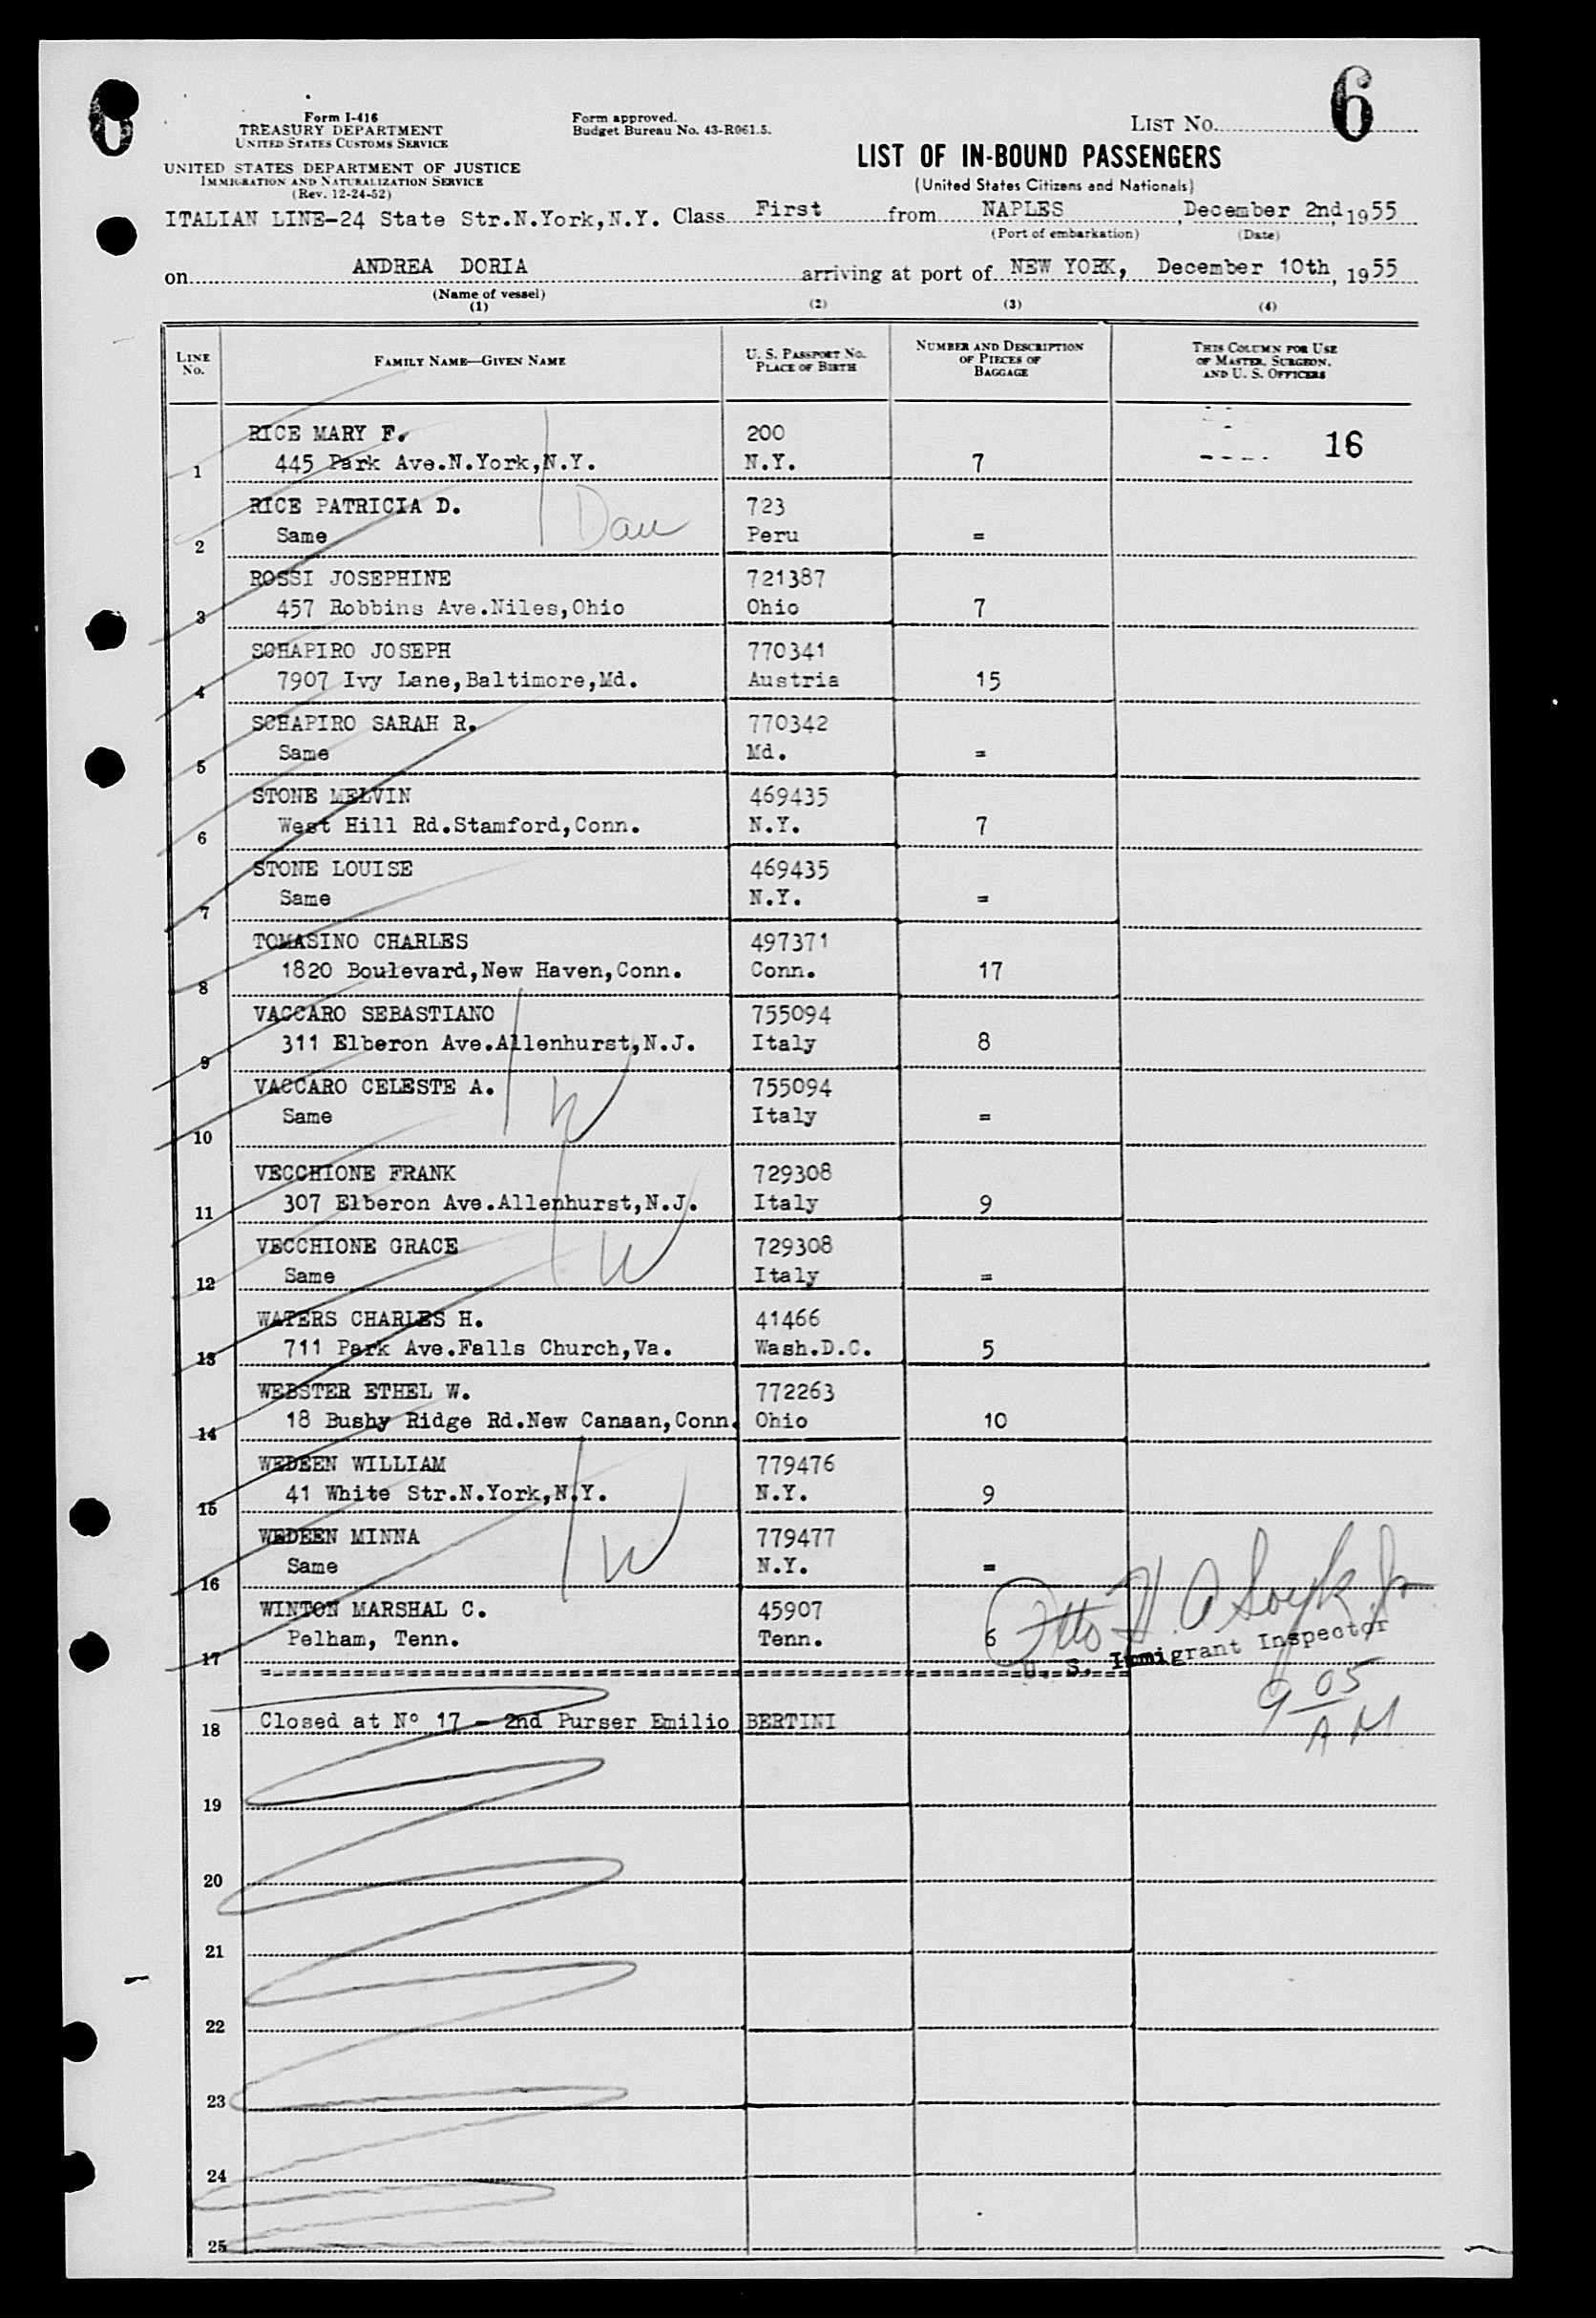 6
6
Form I-416
TREASURY DEPARTMENT
UNITED STATES CUSTOMS SERVICE
UNITED STATES DEPARTMENT OF JUSTICE
IMMIGRATION AND NATURALIZATION SERVICE
(Rev. 12-24-52)
Form approved.
Budget Bureau No. 43-R061.5.
LIST NO.
LIST OF IN-BOUND PASSENGERS
(United States Citizens and Nationals)
ITALIAN LINE-24 State Str.N.York,N.Y. Class First from NAPLES, December 2nd, 1955
(Port of embarkation) (Date)
on ANDREA DORIA arriving at port of NEW YORK, December 10th, 1955
(Name of vessel)
(1) (2) (3) (4)
LINE NO. FAMILY NAME—GIVEN NAME U. S. PASSPORT NO. PLACE OF BIRTH NUMBER AND DESCRIPTION OF PIECES OF BAGGAGE THIS COLUMN FOR USE OF MASTER, SURGEON, AND U. S. OFFICERS
RICE MARY F. 200 16
1 445 Park Ave.N.York,N.Y. N.Y. 7
RICE PATRICIA D. Dau 723
2 Same Peru =
ROSSI JOSEPHINE 721387
3 457 Robbins Ave.Niles,Ohio Ohio 7
SCHAPIRO JOSEPH 770341
4 7907 Ivy Lane,Baltimore,Md. Austria 15
SCHAPIRO SARAH R. 770342
5 Same Md. =
STONE MELVIN 469435
6 West Hill Rd.Stamford,Conn. N.Y. 7
STONE LOUISE 469435
7 Same N.Y. =
TOMASINO CHARLES 497371
8 1820 Boulevard,New Haven,Conn. Conn. 17
VACCARO SEBASTIANO 755094
9 311 Elberon Ave.Allenhurst,N.J. Italy 8
VACCARO CELESTE A. W 755094
10 Same Italy =
VECCHIONE FRANK 729308
11 307 Elberon Ave.Allenhurst,N.J. Italy 9
VECCHIONE GRACE W 729308
12 Same Italy =
WATERS CHARLES H. 41466
13 711 Park Ave.Falls Church,Va. Wash.D.C. 5
WEBSTER ETHEL W. 772263
14 18 Bushy Ridge Rd.New Canaan,Conn. Ohio 10
WEDEEN WILLIAM 779476
15 41 White Str.N.York,N.Y. N.Y. 9
WEDEEN MINNA W 779477
16 Same N.Y. =
WINTON MARSHAL C. 45907
17 Pelham, Tenn. Tenn. 6
U. S. Immigrant Inspector
9 05 AM
18 Closed at Nº 17 - 2nd Purser Emilio BERTINI
19
20
21
22
23
24
25